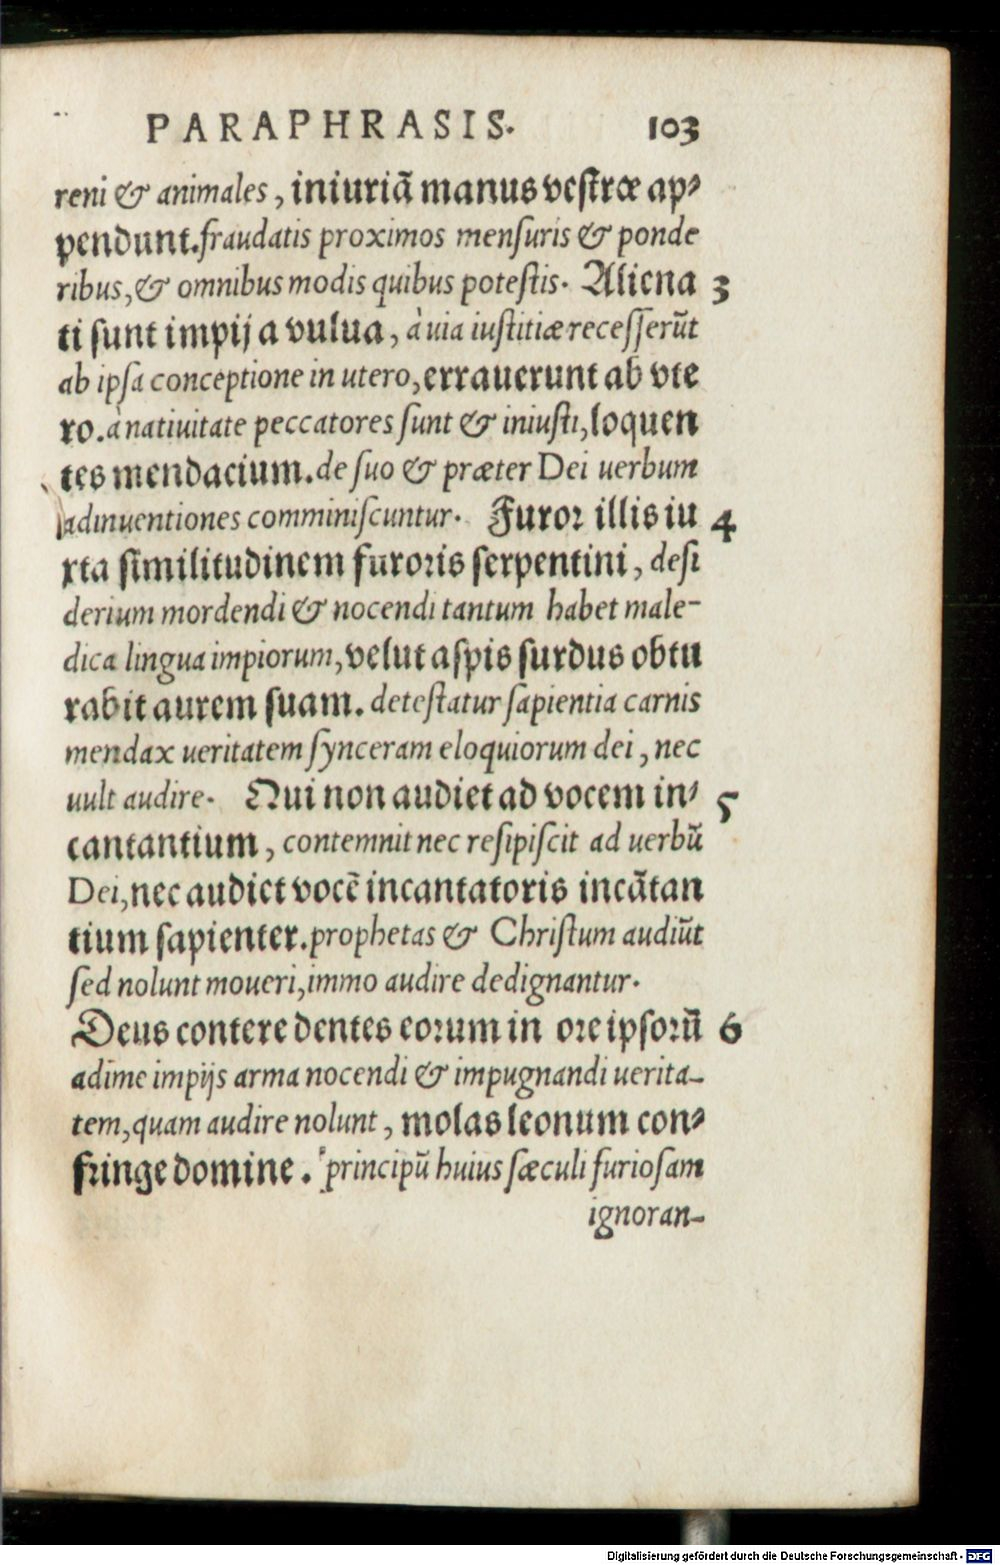 PARAPHRASIS. 103
reni & animales, iniuriã manus vestræ ap⸗
pendunt. fraudatis proximos mensuris & ponde
ribus, & omnibus modis quibus potestis. Aliena 3
ti sunt impij a vulua, à uia iustitiæ recesserũt
ab ipsa conceptione in utero, errauerunt ab vte
ro. à natiuitate peccatores sunt & iniusti, loquen
tes mendacium. de suo & præter Dei uerbum
adinuentiones comminiscuntur. Furor illis iu 4
xta similitudinem furoris serpentini, desi
derium mordendi & nocendi tantum habet male-
dica lingua impiorum, velut aspis surdus obtu
rabit aurem suam. detestatur sapientia carnis
mendax ueritatem synceram eloquiorum dei, nec
uult audire. Qui non audiet ad vocem in⸗ 5
cantantium, contemnit nec resipiscit ad uerbũ
Dei, nec audiet vocẽ incantatoris incãtan
tium sapienter. prophetas & Christum audiũt
sed nolunt moueri, immo audire dedignantur.
Deus contere dentes eorum in ore ipsorũ 6
adime impijs arma nocendi & impugnandi uerita-
tem, quam audire nolunt, molas leonum con⸗
fringe domine. principũ huius sæculi furiosam
ignoran-
Digitalisierung gefördert durch die Deutsche Forschungsgemeinschaft - DFG